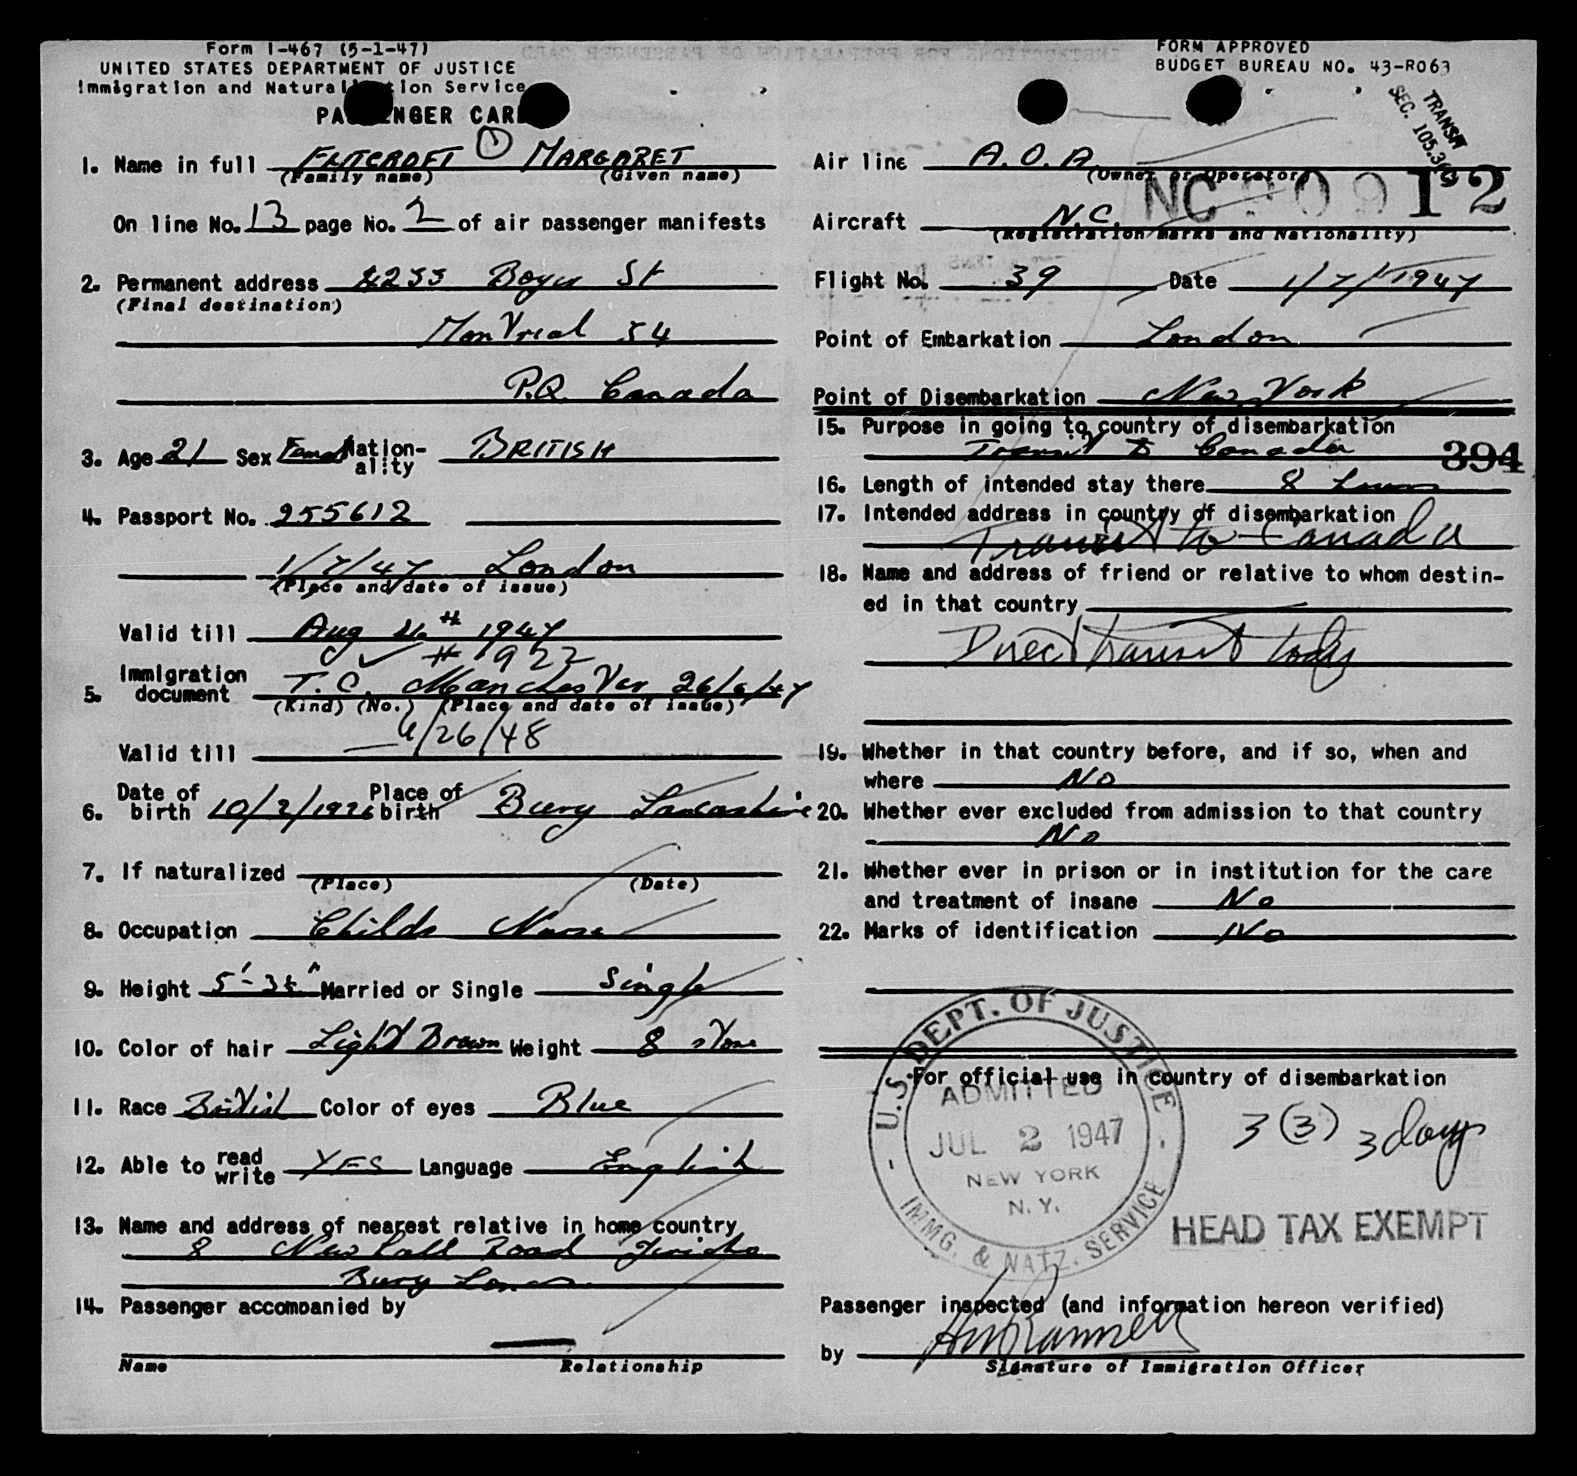 Form I-467 (5-1-47)
UNITED STATES DEPARTMENT OF JUSTICE
Immigration and Naturalization Service
PASSENGER CARD
FORM APPROVED
BUDGET BUREAU NO. 43-R063
TRANSIT
SEC. 105.3(
1. Name in full FLITCROFT 1 MARGARET
(Family name) (Given name)
On line No. 13 page No. 2 of air passenger manifests
2. Permanent address 4255 Boyer St
(Final destination)
Montreal 34
P.Q. Canada
3. Age 21 Sex Female Nationality BRITISH
4. Passport No. 255612
1/7/47 London
(Place and date of issue)
Valid till Aug 4th 1947
# 1922
5. Immigration document T.C. Manchester 26/6/47
(Kind) (No.) (Place and date of issue)
Valid till 6/26/48
6. Date of birth 10/2/1926 Place of birth Bury Lancashire
7. If naturalized
(Place) (Date)
8. Occupation Childs Nurse
9. Height 5'-3½" Married or Single Single
10. Color of hair Light Brown Weight 8 stone
11. Race British Color of eyes Blue
12. Able to read write YES Language English
13. Name and address of nearest relative in home country
8 Newhall Road Jericho
Bury Lancs.
14. Passenger accompanied by
Name Relationship
Air line A.O.A.
(Owner or Operator)
NC 90912
Aircraft N.C.
(Registration marks and Nationality)
Flight No. 39 Date 1/7/1947
Point of Embarkation London
Point of Disembarkation New York
15. Purpose in going to country of disembarkation
Transit to Canada
394
16. Length of intended stay there 8 hours
17. Intended address in country of disembarkation
Transit to Canada
18. Name and address of friend or relative to whom destin-
ed in that country
Direct transit today
19. Whether in that country before, and if so, when and
where No
20. Whether ever excluded from admission to that country
No
21. Whether ever in prison or in institution for the care
and treatment of insane No
22. Marks of identification No
For official use in country of disembarkation
U.S. DEPT. OF JUSTICE
ADMITTED
JUL 2 1947
NEW YORK
N.Y.
IMMG. & NATZ. SERVICE
3 (3) 3 days
HEAD TAX EXEMPT
Passenger inspected (and information hereon verified)
by
Signature of Immigration Officer